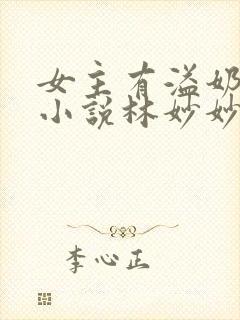 女主有溢奶
小说林妙妙
李心正